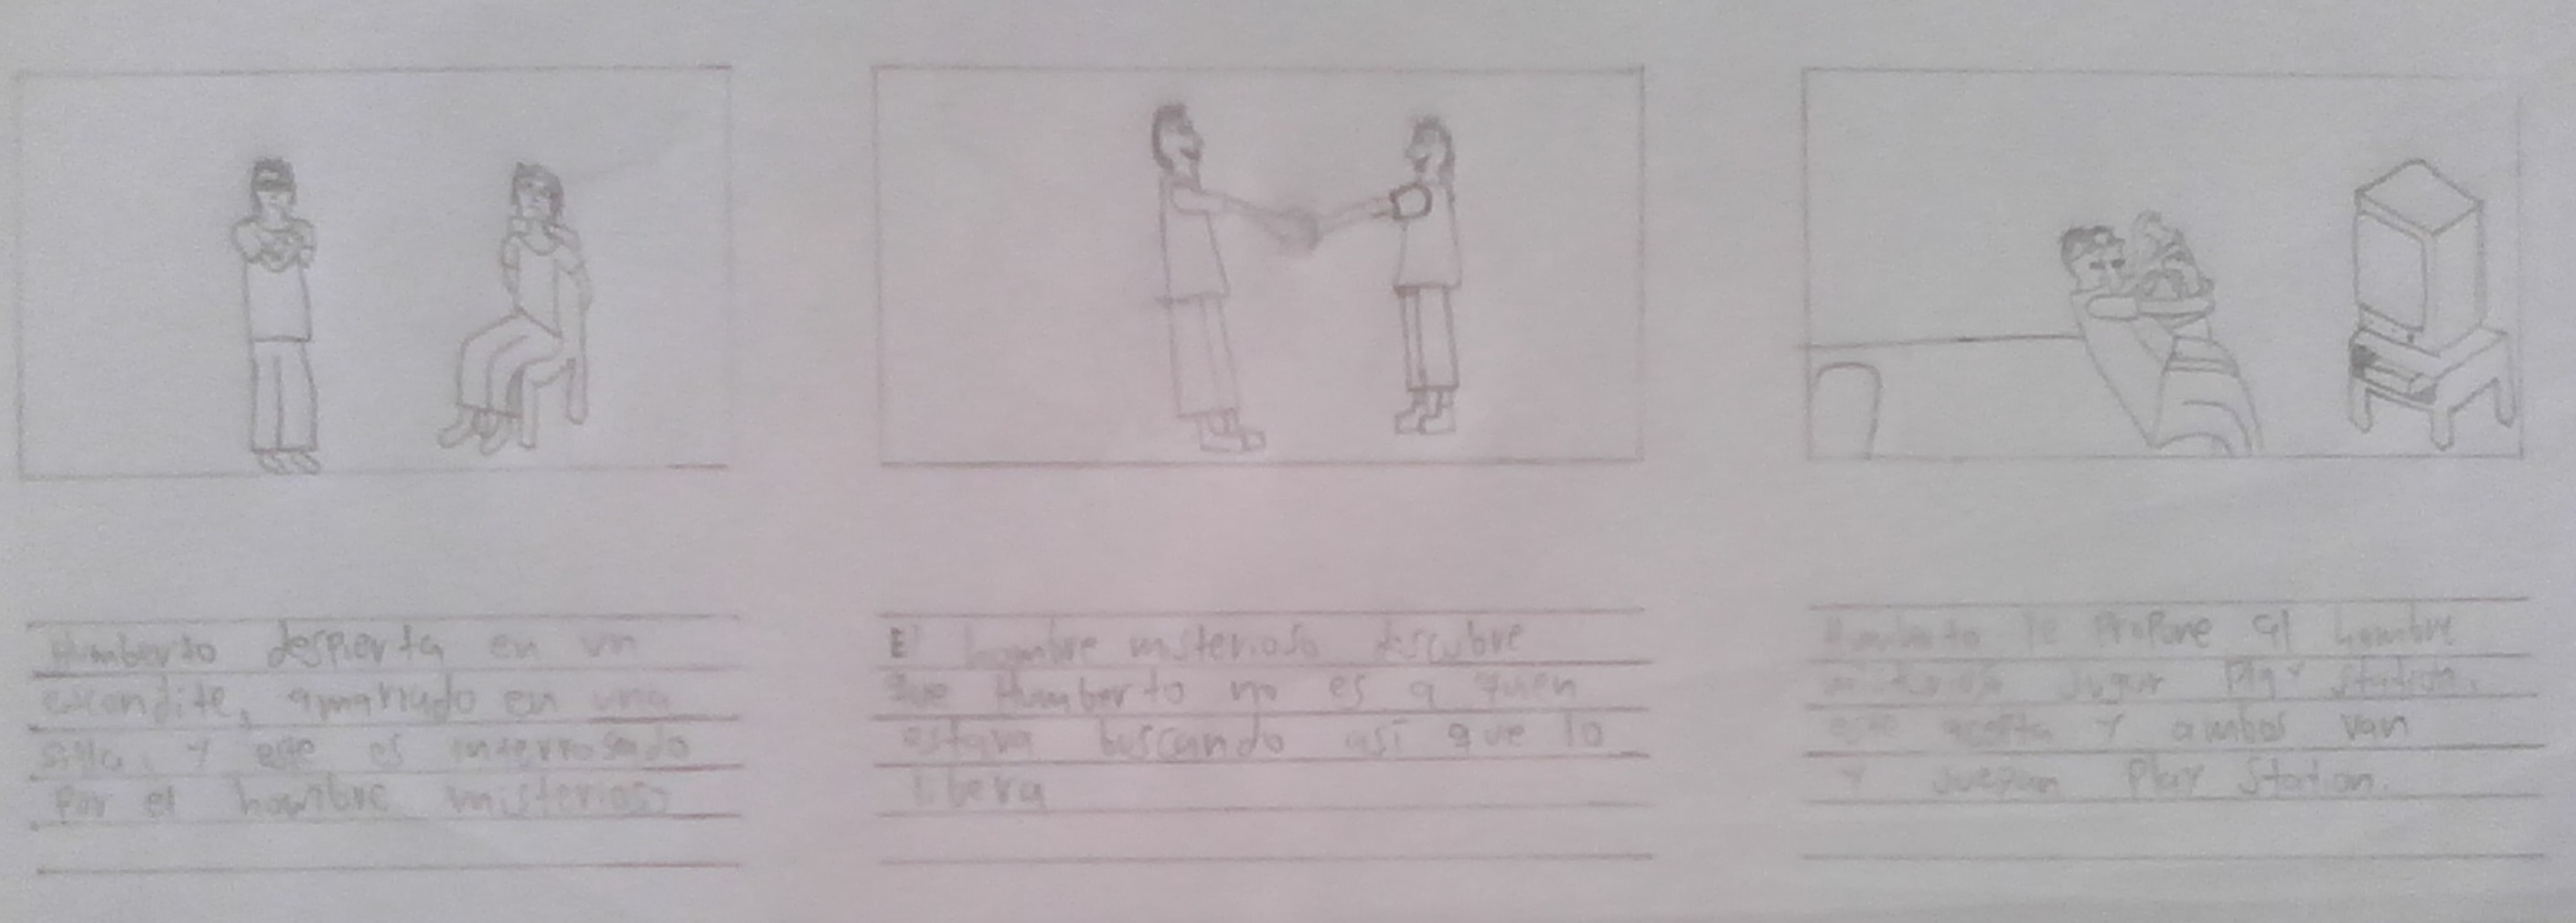 Humberto despierta en un
escondite, amarrado en una
silla. Y ese es interrogado
por el hombre misterioso
El hombre misterioso descubre
que Humberto no es a quien
estava buscando así que lo
libera
Humberto le propone al hombre
misterioso jugar Play Station.
este acepta Y ambos van
Y juegan Play Station.